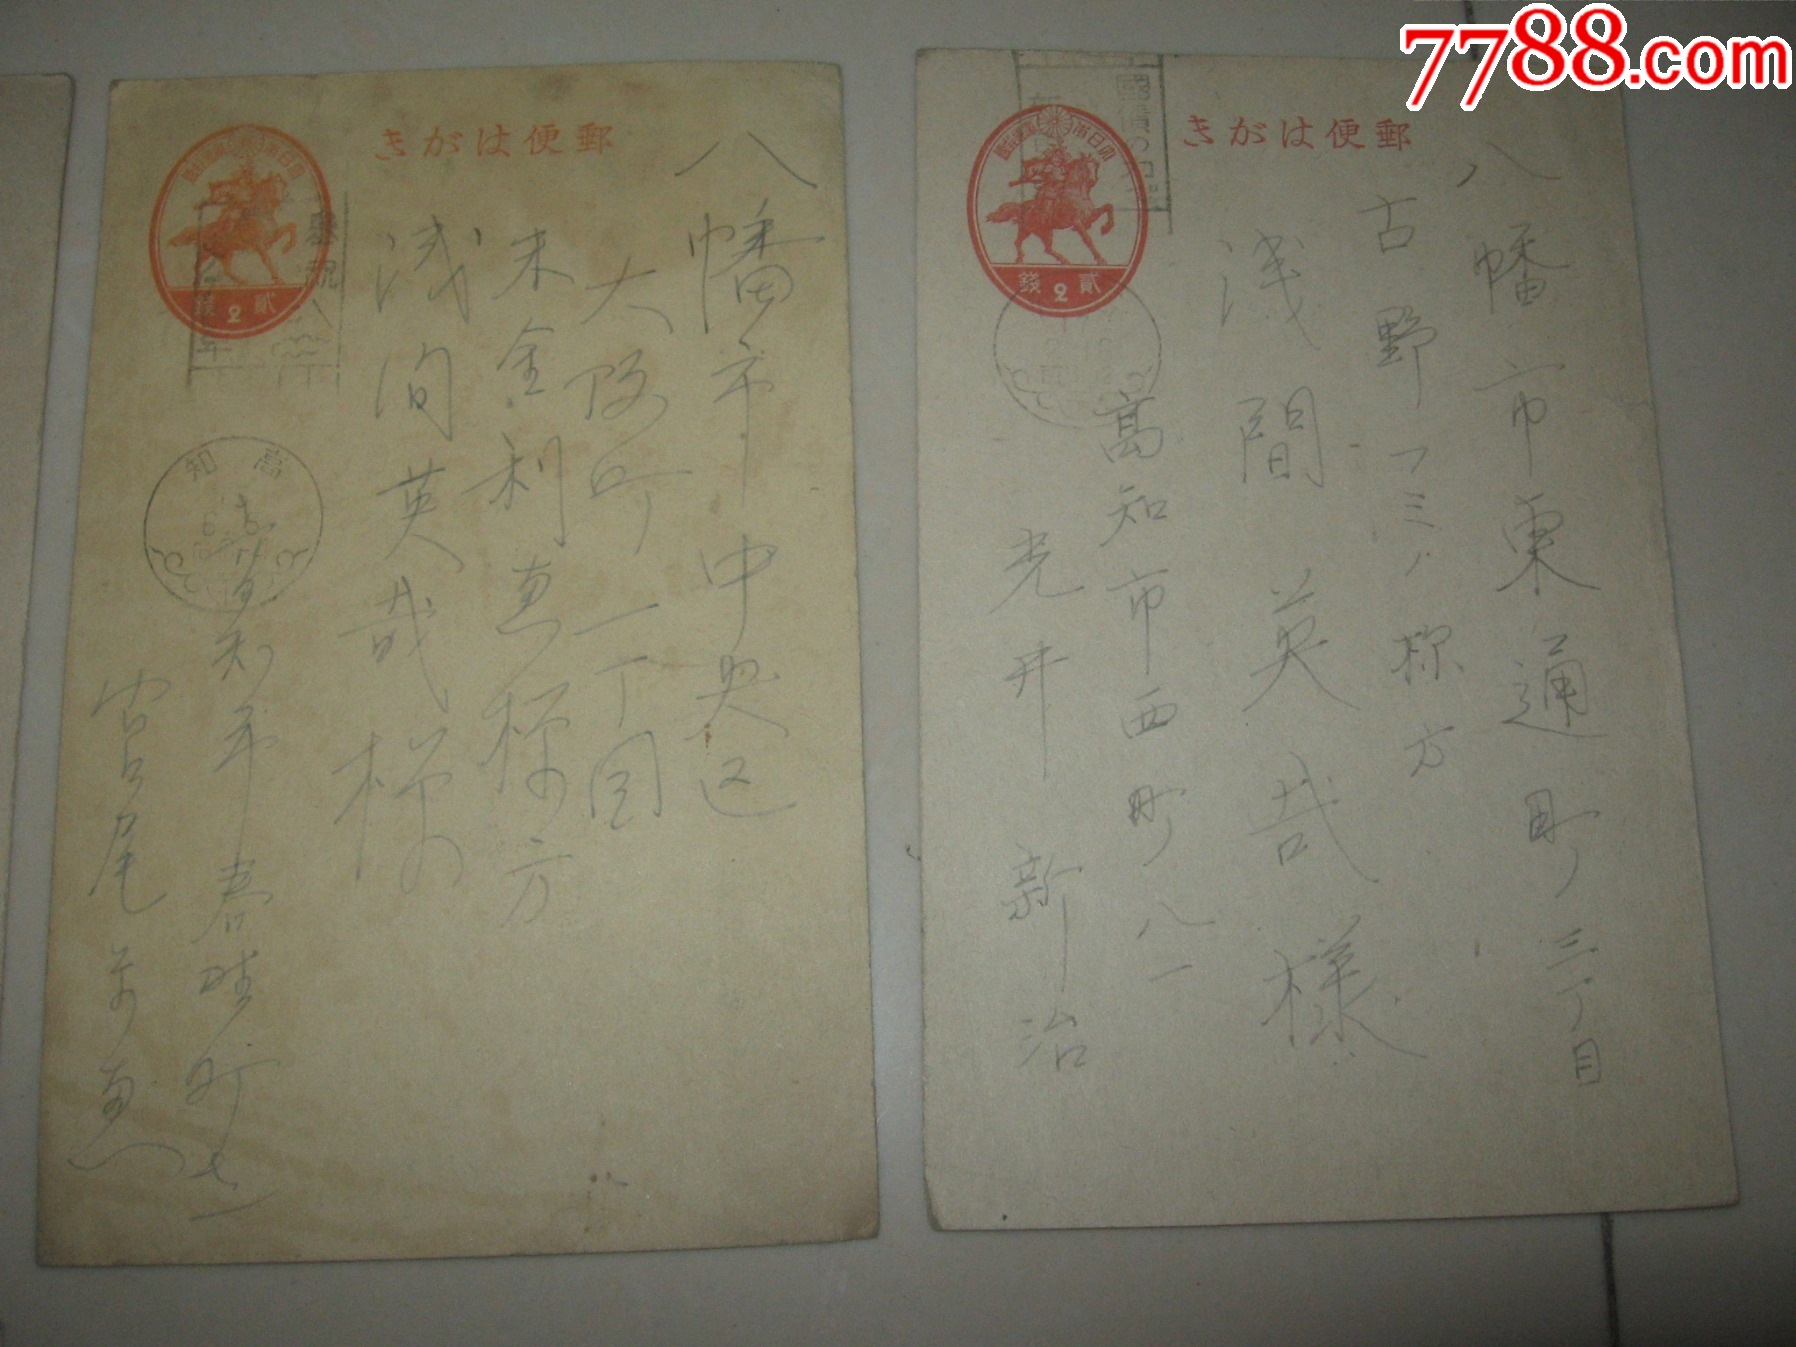 7788.com
郵便はがき
大日本帝國郵便
貳錢
2
高知
八幡市中央区
大阪町一丁目
末金利恵様方
浅间英哉様
高知市春野町七一
宮尾
郵便はがき
大日本帝國郵便
貳錢
2
國債
八幡市東通町三丁目
古野フミノ様方
浅間英哉様
高知市西町八一
光井新治